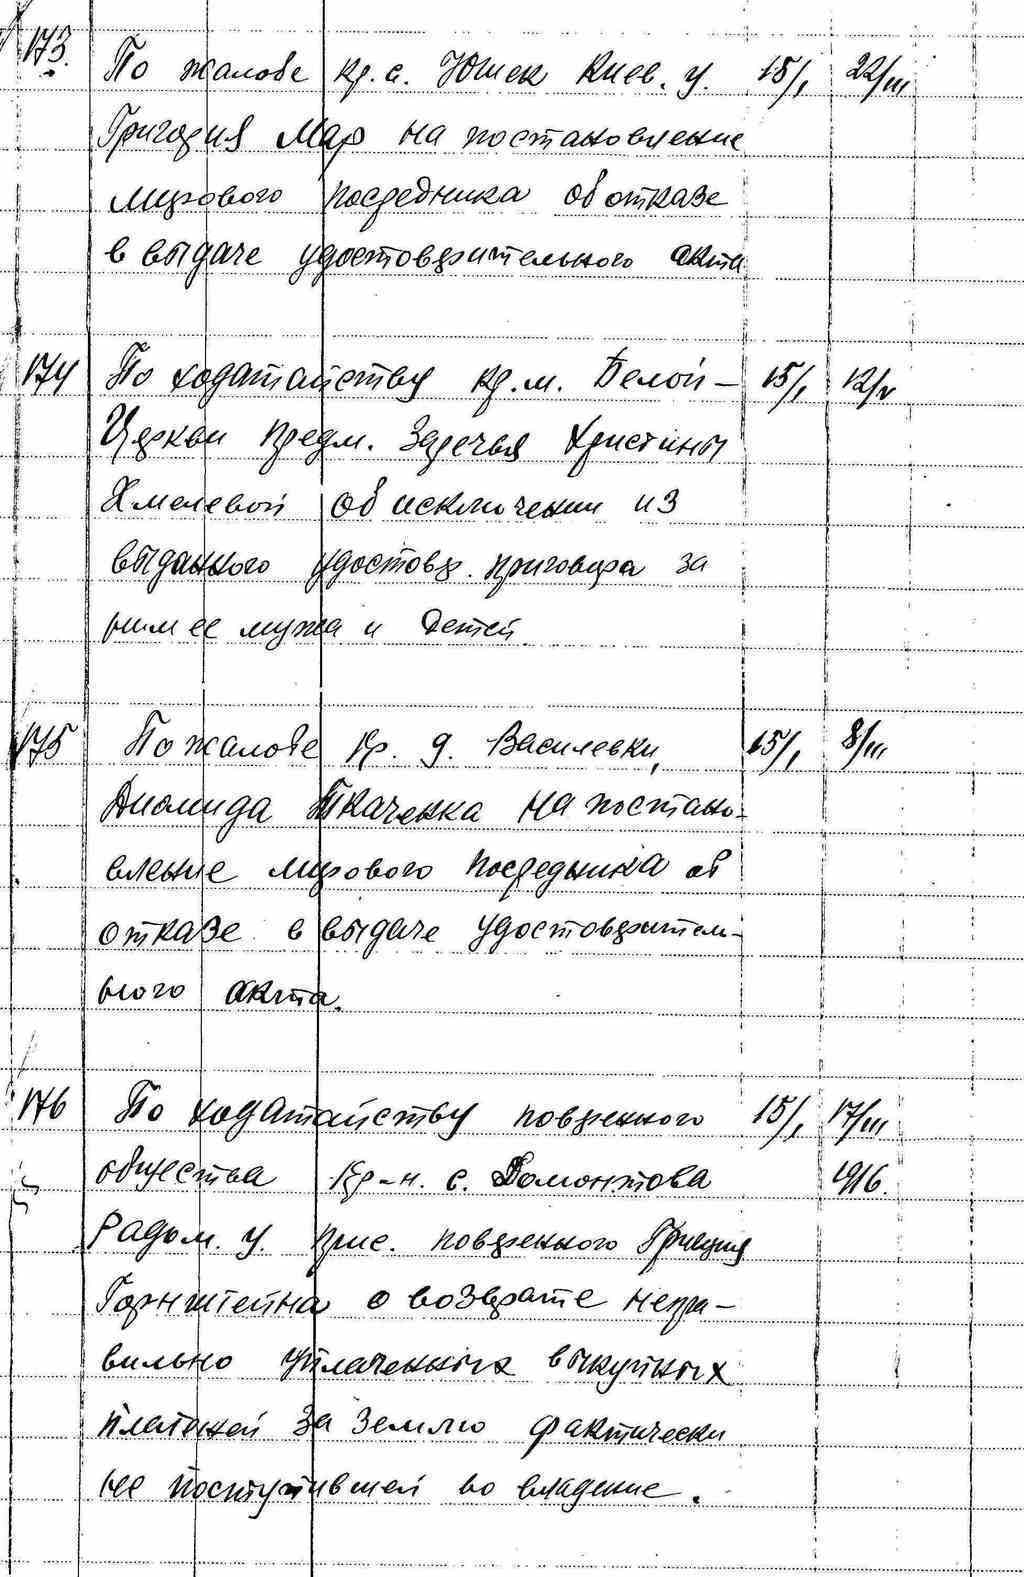 173. По жалобе кр. с. Юшек Киев. у. 15/I 22/III
Григория Мар на постановление
мирового посредника об отказе
в выдаче удостоверительного акта
174 По ходатайству кр. м. Белой- 15/I 12/V
Церкви предм. Заречья Христины
Хмелевой об исключении из
выданного удостовер. приговора за
ним ее мужа и детей
175 По жалобе кр. д. Василевки, 15/I 8/III
Диомида Ткаченка на постано-
вление мирового посредника об
отказе в выдаче удостоверитель-
ного акта.
176 По ходатайству поверенного 15/I 17/III
общества кр-н. с. Домонтова 1916.
Радом. у. прис. поверенного Григория
Горнштейна о возврате непра-
вильно уплаченных выкупных
платежей за землю фактически
не поступившей во владение.